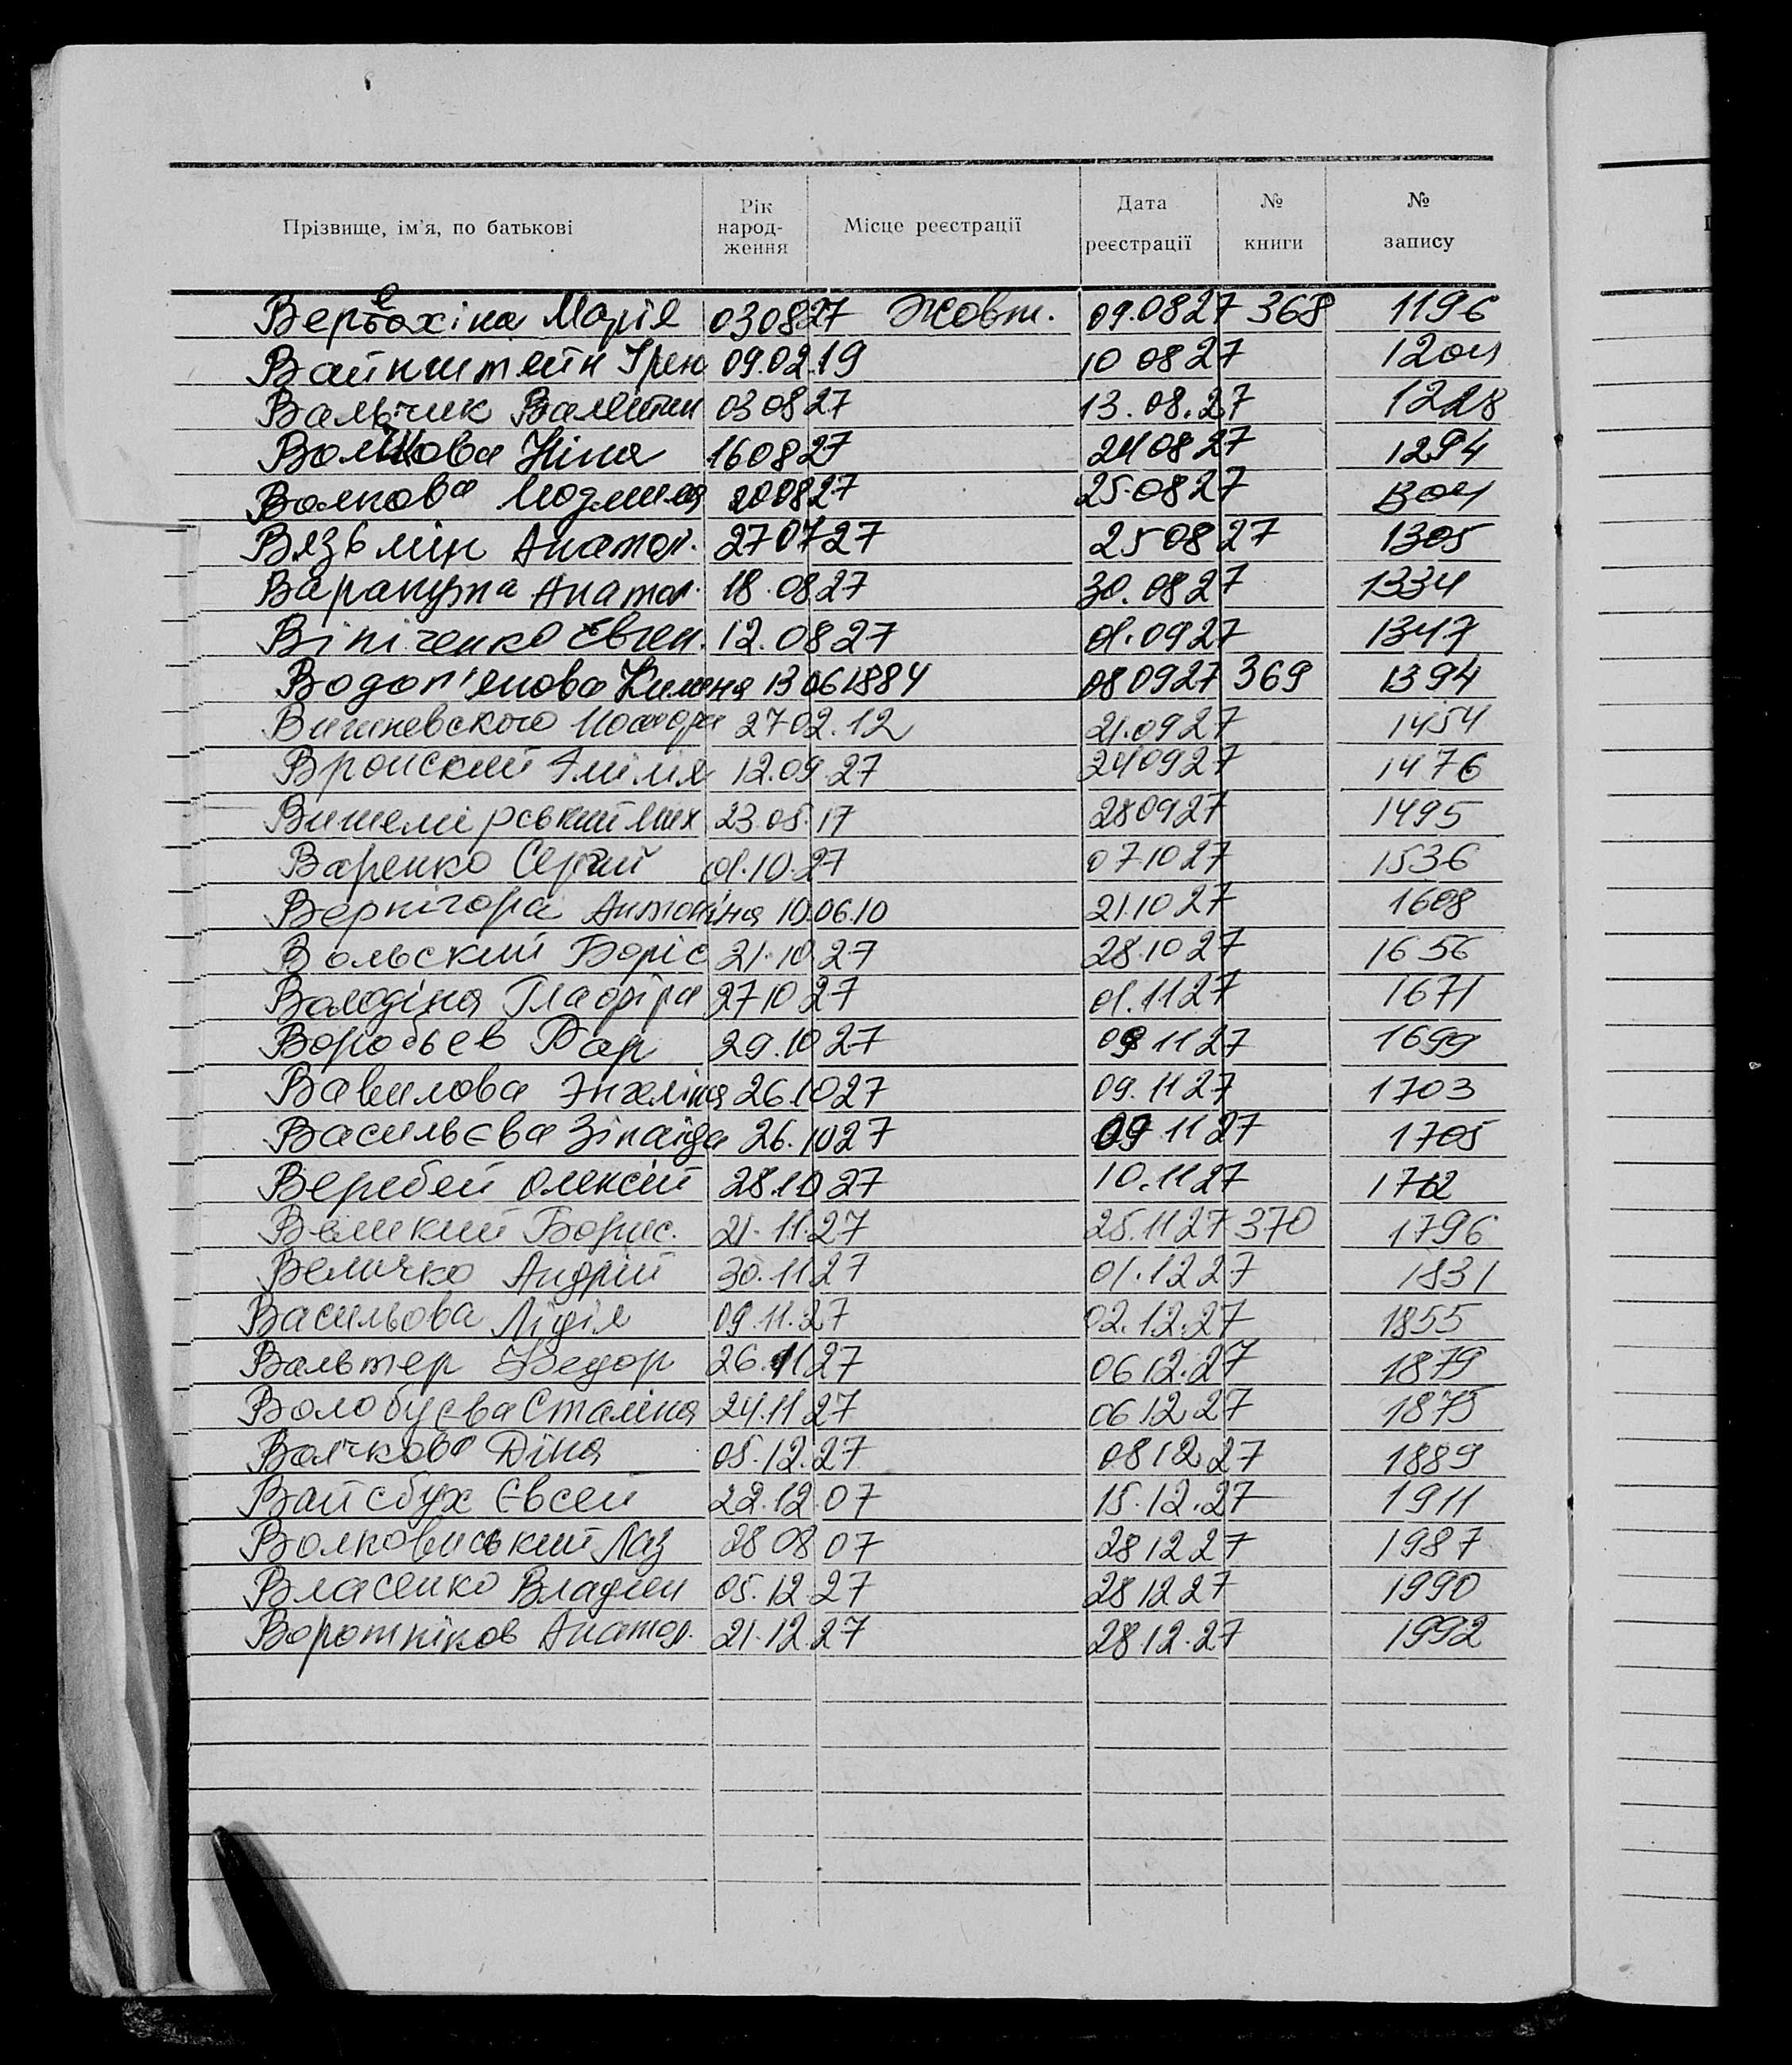 Прізвище, ім'я, по батькові Рік народ-ження Місце реєстрації Дата реєстрації № книги № запису
Марія 030827 Жовт. 09.0827 368 1196
Вайнштейн Ірен 09.02.19 10 0827
Вальчик Валентин 030827 13.08.27 1228
Ніна 160827 240827 1294
Волкова Людмила 200827 25.0827 1304
Вязьмін Анатол. 270727 250827 1305
Варакута Анатол. 18.0827 30.0827 1334
Віпіченко Євген. 12.0827 01.0927 1347
Водоп'янова 13061884 080927 369 1394
Вишневского 2702.12 21.0927 1454
Вронский Эмілія 12.09.27 240927 1476
Вишемірський Мих 23.05.17 280927 1495
Варенко Сергій 01.10.27 071027 1536
Вернігора Антоніна 10.06.10 21.1027 1608
Вольский Боріс 21.1027 28.1027 1656
Володіна Глафіра 271027 01.1127 1671
Воробьев 29.1027 1127 1699
Вавилова Энгеліна 26.1027 09.1127 1703
Васильєва Зінаїда 26.1027 09.1127 1705
Веребей Олексій 28.1027 10.1127 1712
Великий Борис. 21.11.27 25.1127 370 1796
Величко Андрій 30.1127 01.1227 1831
Васильова Лідія 09.11.27 02.12.27 1855
Вальтер Федор 26.1127 0612.27 1879
Волобуєва Сталіна 24.1127 061227 1875
Волчкова Діна 05.12.27 081227 1889
Вайсбух Євсей 22.12.07 15.12.27 1911
Волковиський Лаз 280807 281227 1987
Власенко Владлен 05.12.27 281227 1990
Воротніков Анатол. 21.12.27 2812.27 1992